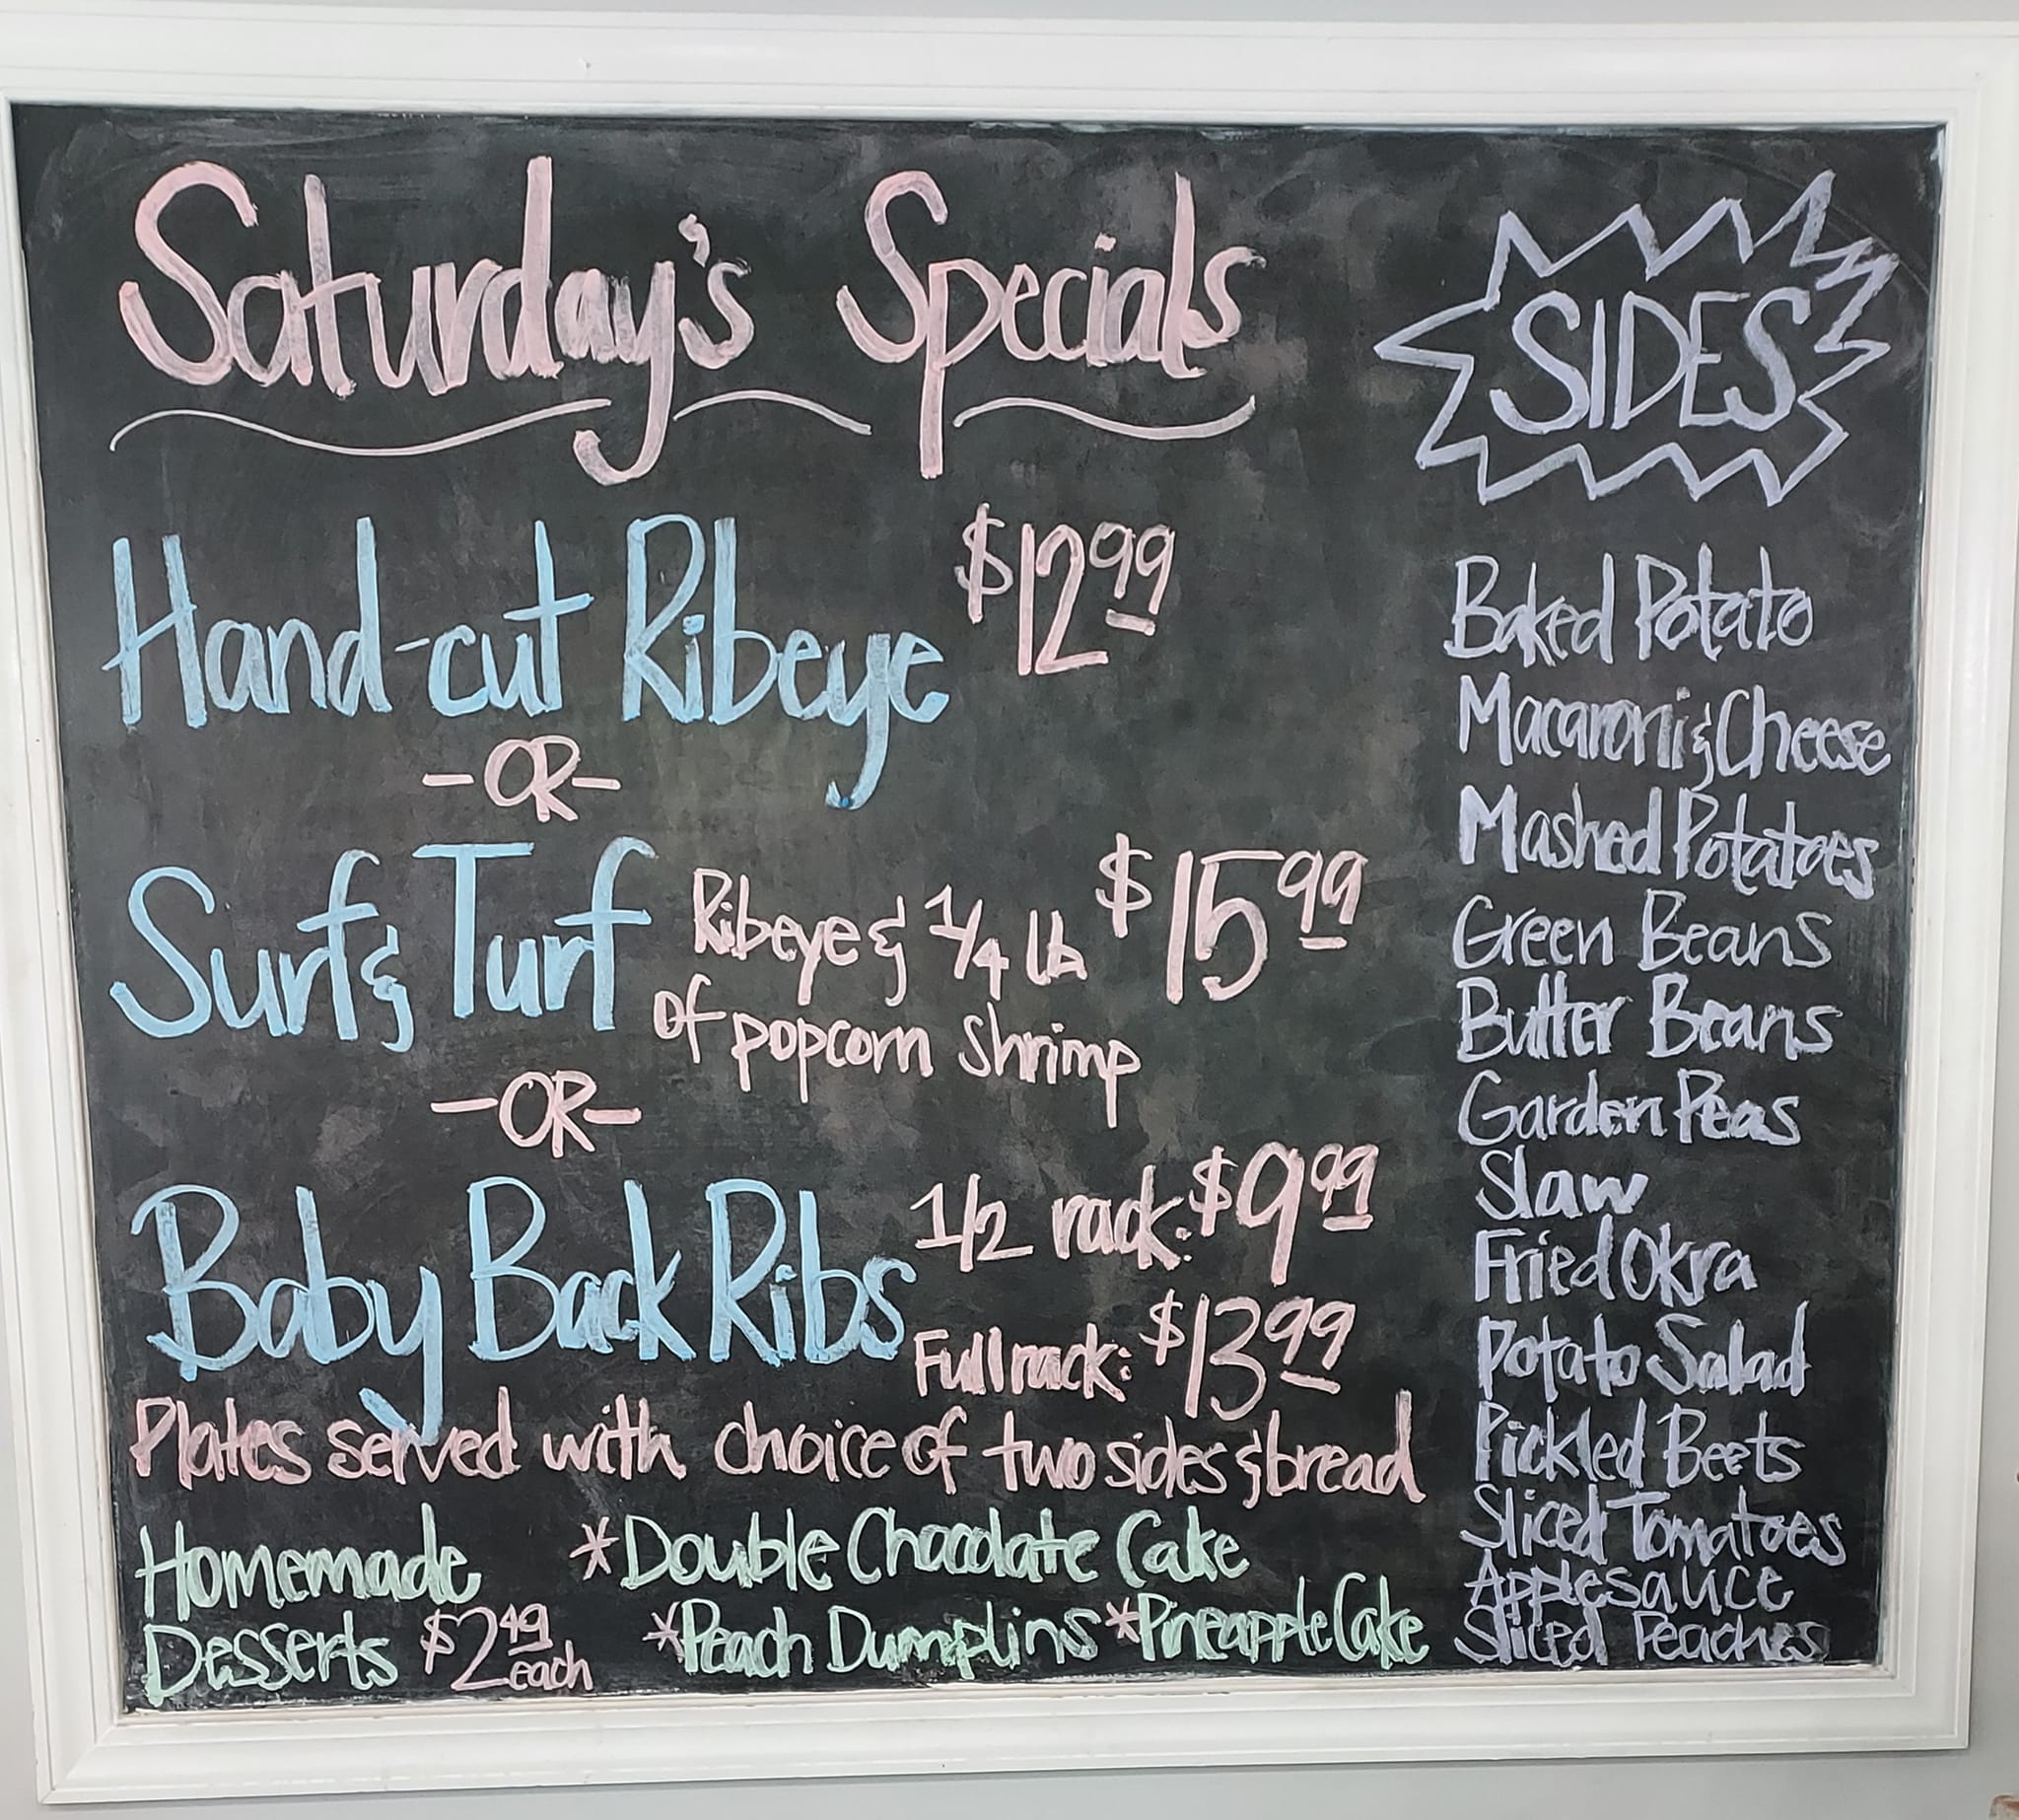 Saturday's Specials
Hand-cut Ribeye $12.99
-OR-
Surf & Turf Ribeye & 1/4 lb $15.99
of popcorn Shrimp
-OR-
Baby Back Ribs 1/2 rack: $9.99
Full rack: $13.99
Plates served with choice of two sides & bread
Homemade *Double Chocolate Cake
Desserts $2.49 each *Peach Dumplins *Pineapple Cake
SIDES
Baked Potato
Macaroni & Cheese
Mashed Potatoes
Green Beans
Butter Beans
Garden Peas
Slaw
Fried Okra
Potato Salad
Pickled Beets
Sliced Tomatoes
Applesauce
Sliced Peaches